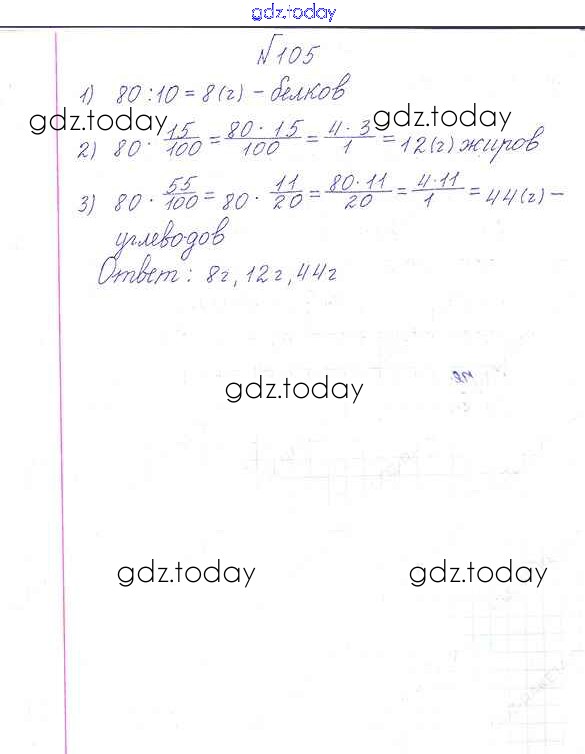 gdz.today
№105
1) 80 : 10 = 8 (г) - белков
gdz.today gdz.today
2) 80 · 15/100 = 80 · 15/100 = 4 · 3/1 = 12 (г) жиров
3) 80 · 55/100 = 80 · 11/20 = 80 · 11/20 = 4 · 11/1 = 44 (г) –
углеводов
Ответ: 8г, 12г, 44г
gdz.today
gdz.today gdz.today